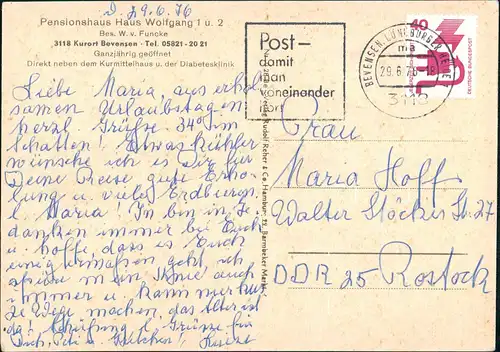 D. 29.6.76
Pensionshaus Haus Wolfgang 1 u. 2
Bes. W. v. Funcke
3118 Kurort Bevensen - Tel. 05821 - 20 21
Ganzjährig geöffnet
Direkt neben dem Kurmittelhaus u. der Diabetesklinik
Post–
damit
man
voneinander
hört
BEVENSEN, LÜNEBURGER HEIDE
ma
29.6.76-18
3118
40
DEUTSCHE BUNDESPOST
Liebe Maria, aus erhol
samen Urlaubstagen
herzl. Grüße. 34° im
Schatten! Etwas kühler
wünsche ich es Dir für
Deine Reise gute Erho-
lung u. viele Erdbeeren
l. Maria! In bin in Ge-
danken immer bei Euch
u. hoffe, dass es Euch
einigermaßen geht, ich
mein Knie auch
immer u. kann nur kur
ze Wege machen, das Alter ist
da! Grüsse für
Dich,
Frau
Maria Hoff
Walter Stöcker Str. 27
DDR 25 Rostock
Rudolf Reher & Co Hamburg